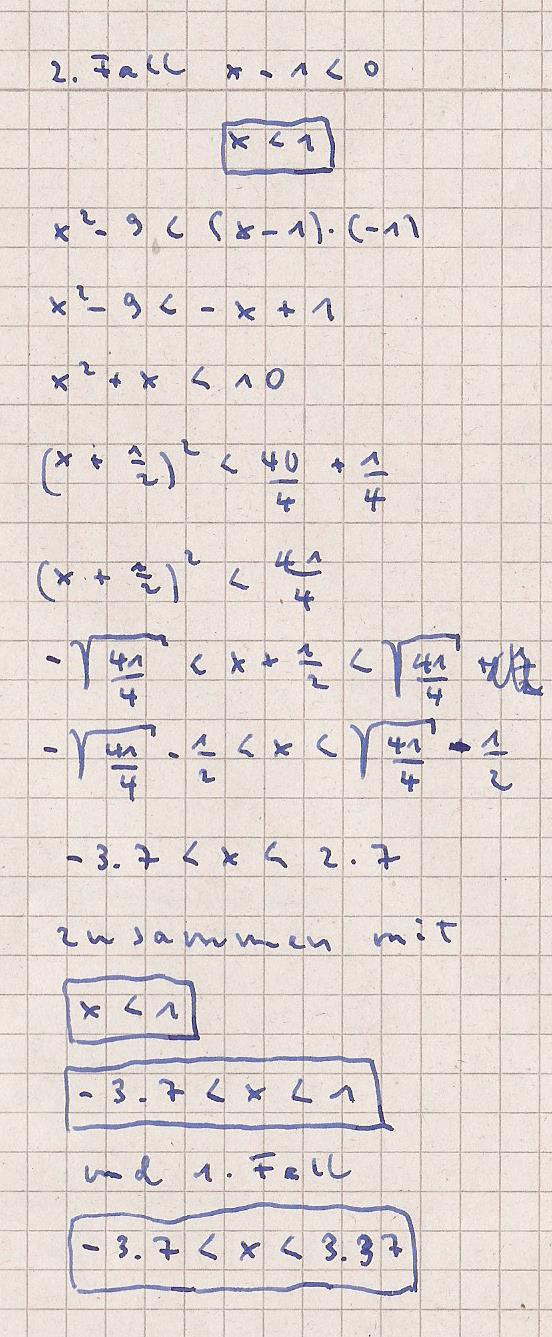 2. Fall x - 1 < 0
x < 1
x² - 9 < (x - 1) · (-1)
x² - 9 < - x + 1
x² + x < 10
(x + 1/2)² < 40/4 + 1/4
(x + 1/2)² < 41/4
-√(41/4) < x + 1/2 < √(41/4)
-√(41/4) - 1/2 < x < √(41/4) - 1/2
-3.7 < x < 2.7
zusammen mit
x < 1
-3.7 < x < 1
und 1. Fall
-3.7 < x < 3.37